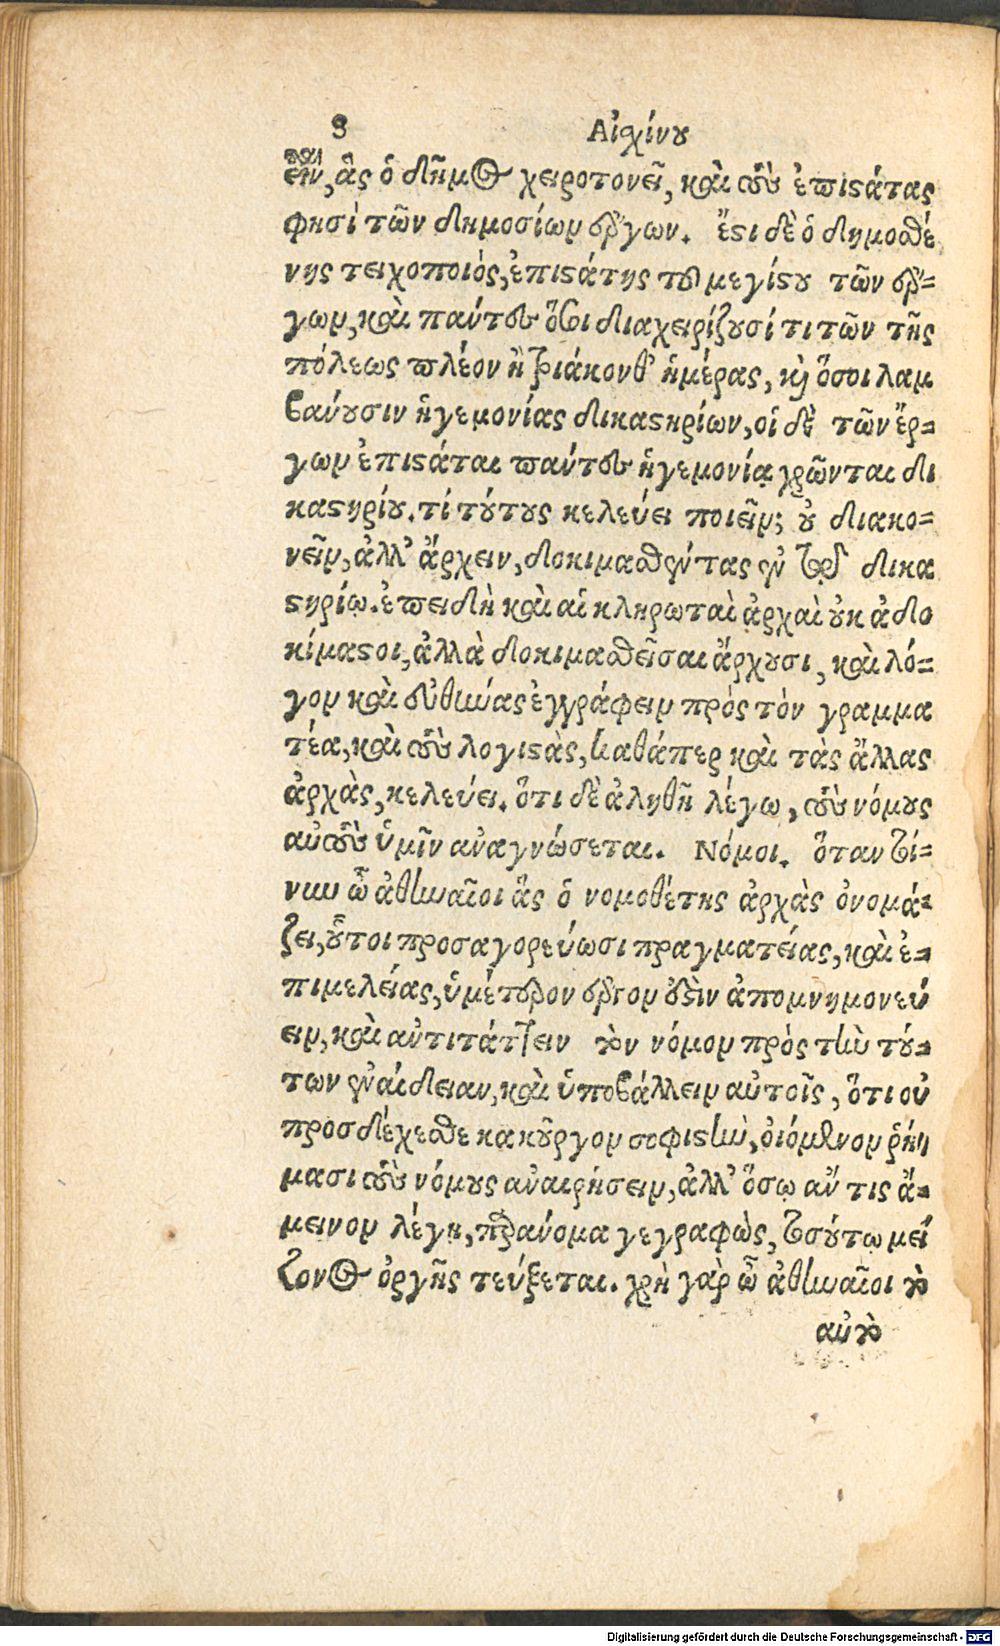 8 Αἰσχίνου
εἶναι, ἃς ὁ δῆμος χειροτονεῖ, καὶ τοὺς ἐπιστάτας
φησὶ τῶν δημοσίων ἔργων. ἔστι δὲ ὁ δημοσθέ
νης τειχοποιὸς, ἐπιστάτης τοῦ μεγίστου τῶν ἔρ-
γων, καὶ πάντας ὅσοι διαχειρίζουσί τι τῶν τῆς
πόλεως πλέον ἢ τριάκονθ' ἡμέρας, καὶ ὅσοι λαμ
βάνουσιν ἡγεμονίας δικαστηρίων, οἱ δὲ τῶν ἔρ-
γων ἐπιστάται πάντες ἡγεμονίᾳ χρῶνται δι
καστηρίου. τί τούτους κελεύει ποιεῖν; οὐ διακο-
νεῖν, ἀλλ' ἄρχειν, δοκιμασθέντας ἐν τῷ δικα
στηρίῳ. ἐπειδὴ καὶ αἱ κληρωταὶ ἀρχαὶ οὐκ ἀδο
κίμαστοι, ἀλλὰ δοκιμασθεῖσαι ἄρχουσι, καὶ λό-
γον καὶ εὐθύνας ἐγγράφειν πρὸς τὸν γραμμα
τέα, καὶ τοὺς λογιστὰς, καθάπερ καὶ τὰς ἄλλας
ἀρχὰς, κελεύει. ὅτι δὲ ἀληθῆ λέγω, τοὺς νόμους
αὐτοὺς ὑμῖν ἀναγνώσεται. Νόμοι. ὅταν τοί-
νυν ὦ ἀθηναῖοι ἃς ὁ νομοθέτης ἀρχὰς ὀνομά-
ζει, οὗτοι προσαγορεύωσι πραγματείας, καὶ ἐ-
πιμελείας, ὑμέτερον ἔργον ἐστὶν ἀπομνημονεύ
ειν, καὶ ἀντιτάττειν τὸν νόμον πρὸς τὴν τού-
των ἀναίδειαν, καὶ ὑποβάλλειν αὐτοῖς, ὅτι οὐ
προσδέχεσθε κακοῦργον σοφιστὴν, οἰόμενον ῥή
μασι τοὺς νόμους ἀναιρήσειν, ἀλλ' ὅσῳ ἄν τις ἄ-
μεινον λέγῃ, παράνομα γεγραφὼς, τοσούτῳ μεί
ζονος ὀργῆς τεύξεται. χρὴ γὰρ ὦ ἀθηναῖοι τὸ
αὐτὸ
Digitalisierung gefördert durch die Deutsche Forschungsgemeinschaft - DFG